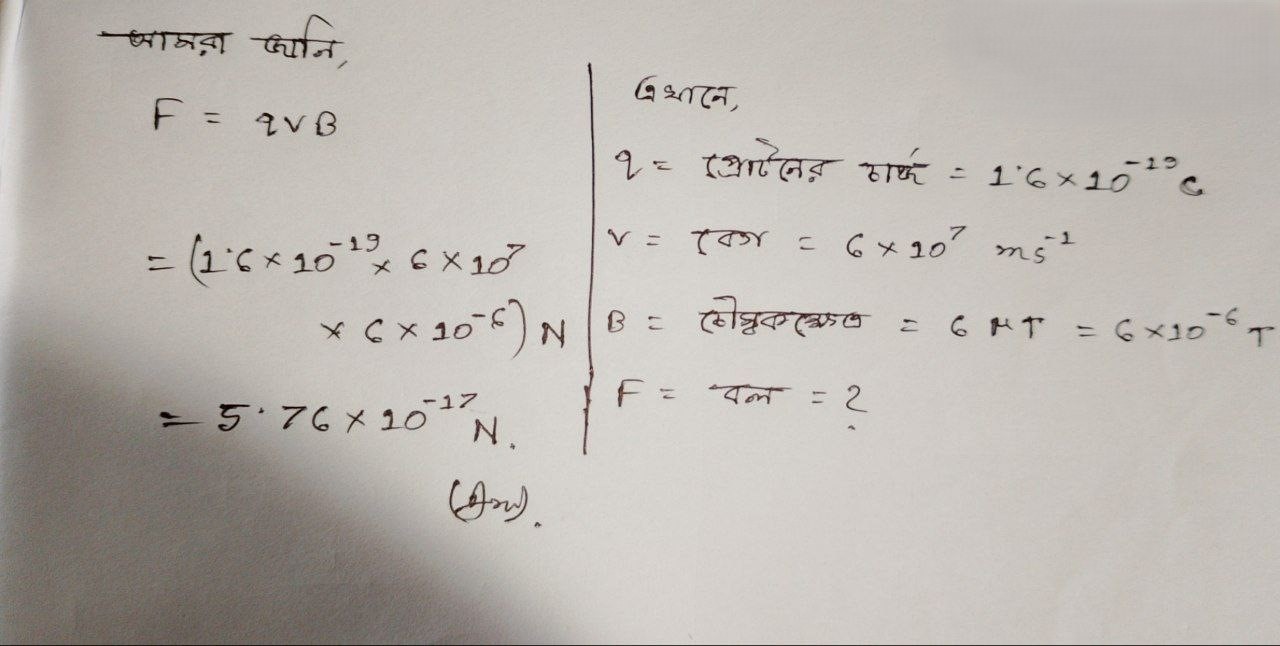 আমরা জানি,
F = qvB
= (1.6 × 10⁻¹⁹ × 6 × 10⁷
× 6 × 10⁻⁶) N
= 5.76 × 10⁻¹⁷ N.
(Ans).
এখানে,
q = প্রোটনের চার্জ = 1.6 × 10⁻¹⁹ C
v = বেগ = 6 × 10⁷ ms⁻¹
B = চৌম্বকক্ষেত্র = 6 μT = 6 × 10⁻⁶ T
F = বল = ?